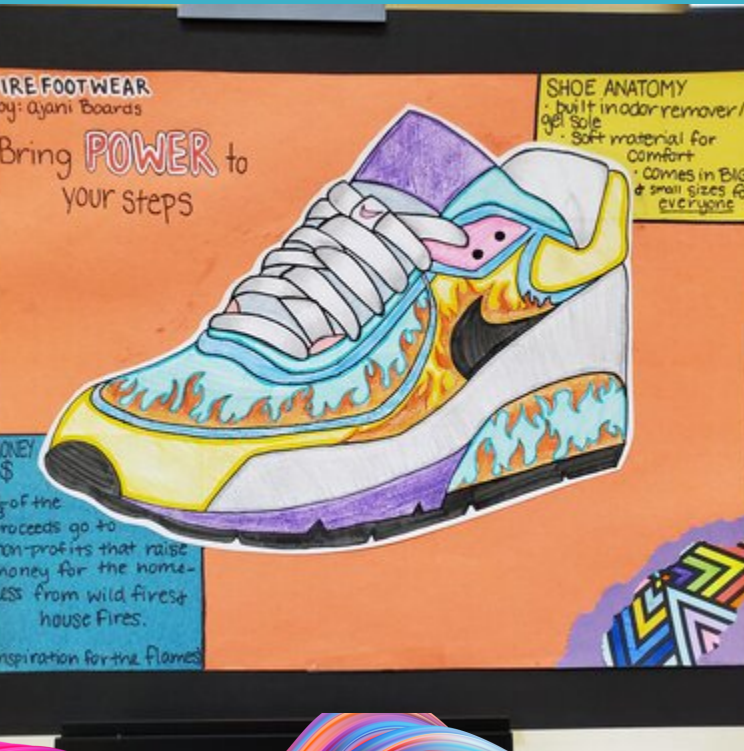 IRE FOOTWEAR
by: ajani Boards
Bring POWER to
your steps
SHOE ANATOMY
· built in odor remover/
gel sole
· soft material for
comfort
· comes in BIG
& small sizes fo
everyone
ONEY
$
of the
roceeds go to
on-profits that raise
money for the home-
ess from wild fires &
house Fires.
nspiration for the flames